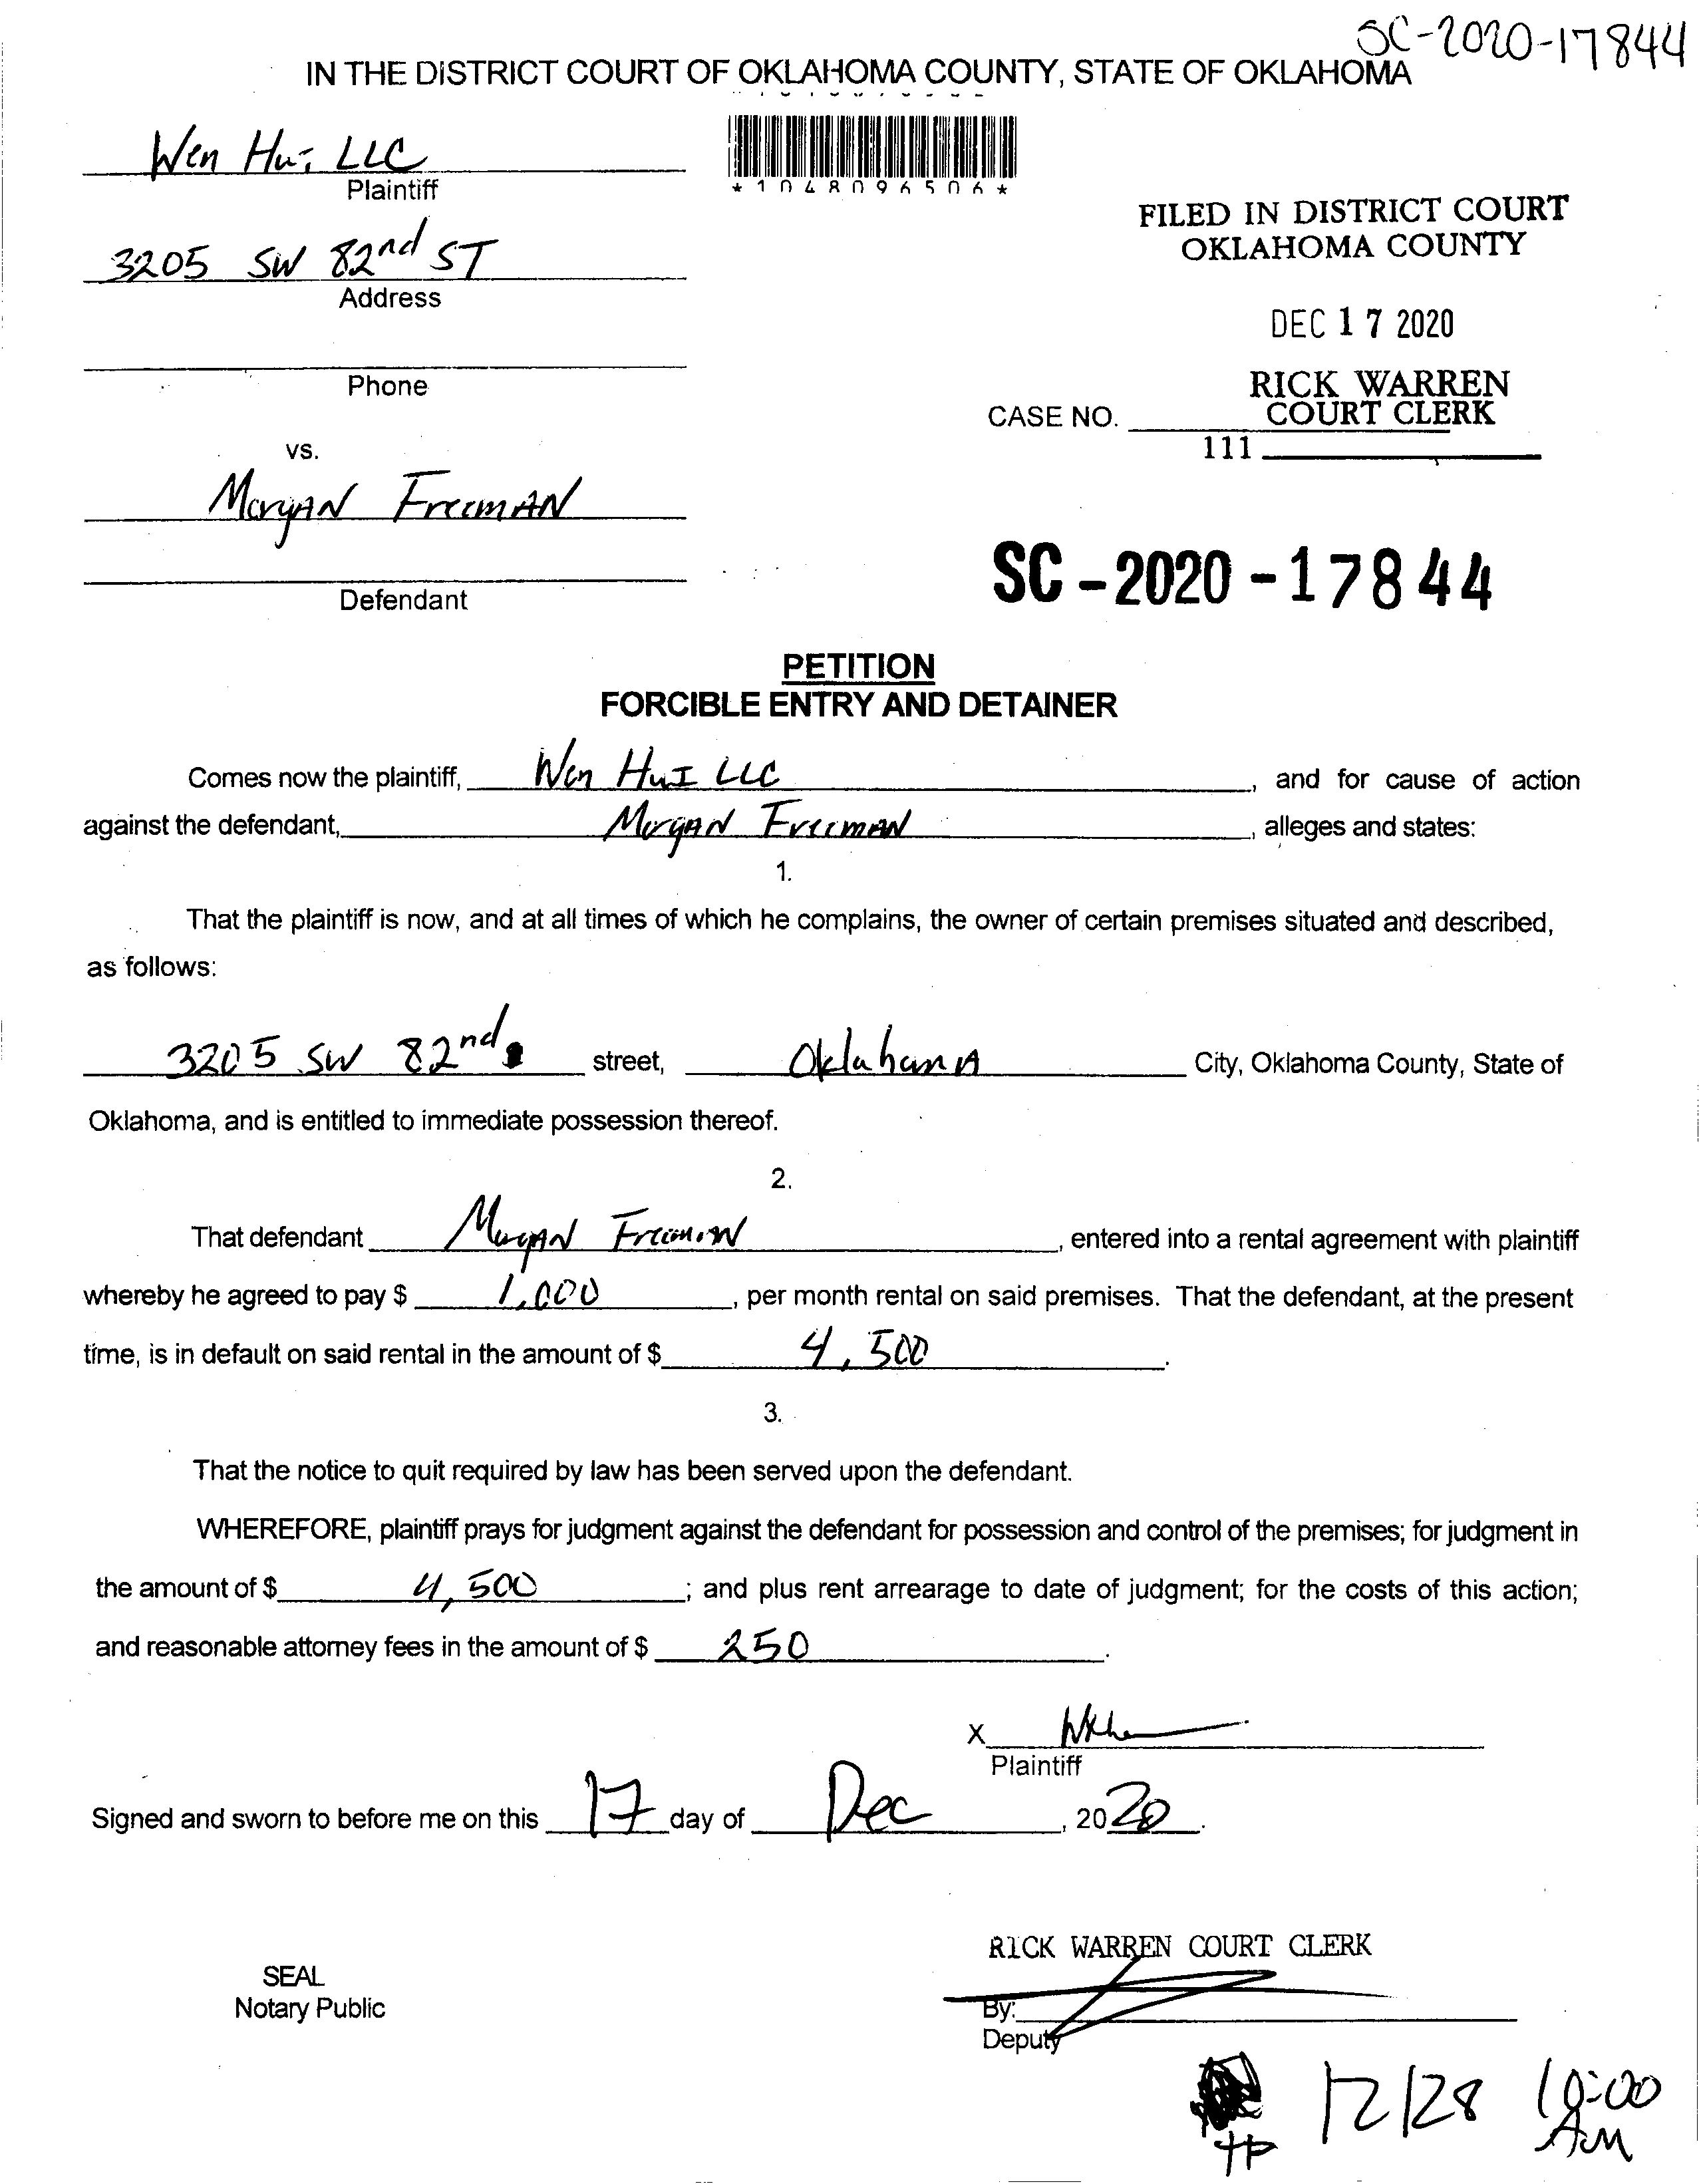 SC-2020-17844
IN THE DISTRICT COURT OF OKLAHOMA COUNTY, STATE OF OKLAHOMA
Wen Hui LLC
Plaintiff
*1048096506*
FILED IN DISTRICT COURT
OKLAHOMA COUNTY
3205 SW 82nd ST
Address
DEC 17 2020
Phone
RICK WARREN
COURT CLERK
CASE NO.
111
vs.
Morgan Freeman
SC-2020-17844
Defendant
PETITION
FORCIBLE ENTRY AND DETAINER
Comes now the plaintiff, Wen Hui LLC, and for cause of action
against the defendant, Morgan Freeman, alleges and states:
1.
That the plaintiff is now, and at all times of which he complains, the owner of certain premises situated and described,
as follows:
3205 SW 82nd street, Oklahoma City, Oklahoma County, State of
Oklahoma, and is entitled to immediate possession thereof.
2.
That defendant Morgan Freeman, entered into a rental agreement with plaintiff
whereby he agreed to pay $ 1,000, per month rental on said premises. That the defendant, at the present
time, is in default on said rental in the amount of $ 4,500.
3.
That the notice to quit required by law has been served upon the defendant.
WHEREFORE, plaintiff prays for judgment against the defendant for possession and control of the premises; for judgment in
the amount of $ 4,500; and plus rent arrearage to date of judgment; for the costs of this action;
and reasonable attorney fees in the amount of $ 250.
X
Plaintiff
Signed and sworn to before me on this 17 day of Dec, 2020.
RICK WARREN COURT CLERK
SEAL
Notary Public
By:
Deputy
12/28 10:00
AM